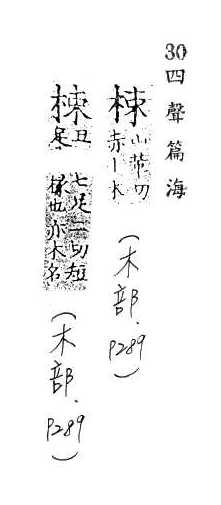 30四聲篇海
栜山革切
赤丨木
(木部.P289)
梀丑足、七足二切短
椽也亦木名
(木部.P289)